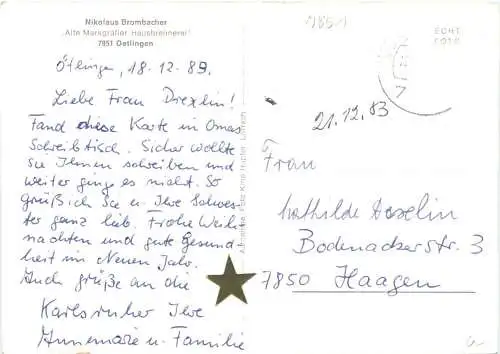 Nikolaus Brombacher
„Alte Markgräfler Hausbrennerei"
7851 Oetlingen
Ötlingen, 18.12.83.
Liebe Frau Drexlin!
Fand diese Karte in Omas
Schreibtisch. Sicher wollte
sie Ihnen schreiben und
weiter ging es nicht. So
grüß ich Sie u. Ihre Schwes-
ter ganz lieb. Frohe Weih-
nachten und gute Gesund-
heit im Neuen Jahr.
Auch grüße an die
Karlsruher Ihre
Annemarie u. Familie
7851
ECHT
FOTO
7
21.12.83
Frau
Mathilde
Bodenackerstr. 3
7850 Haagen